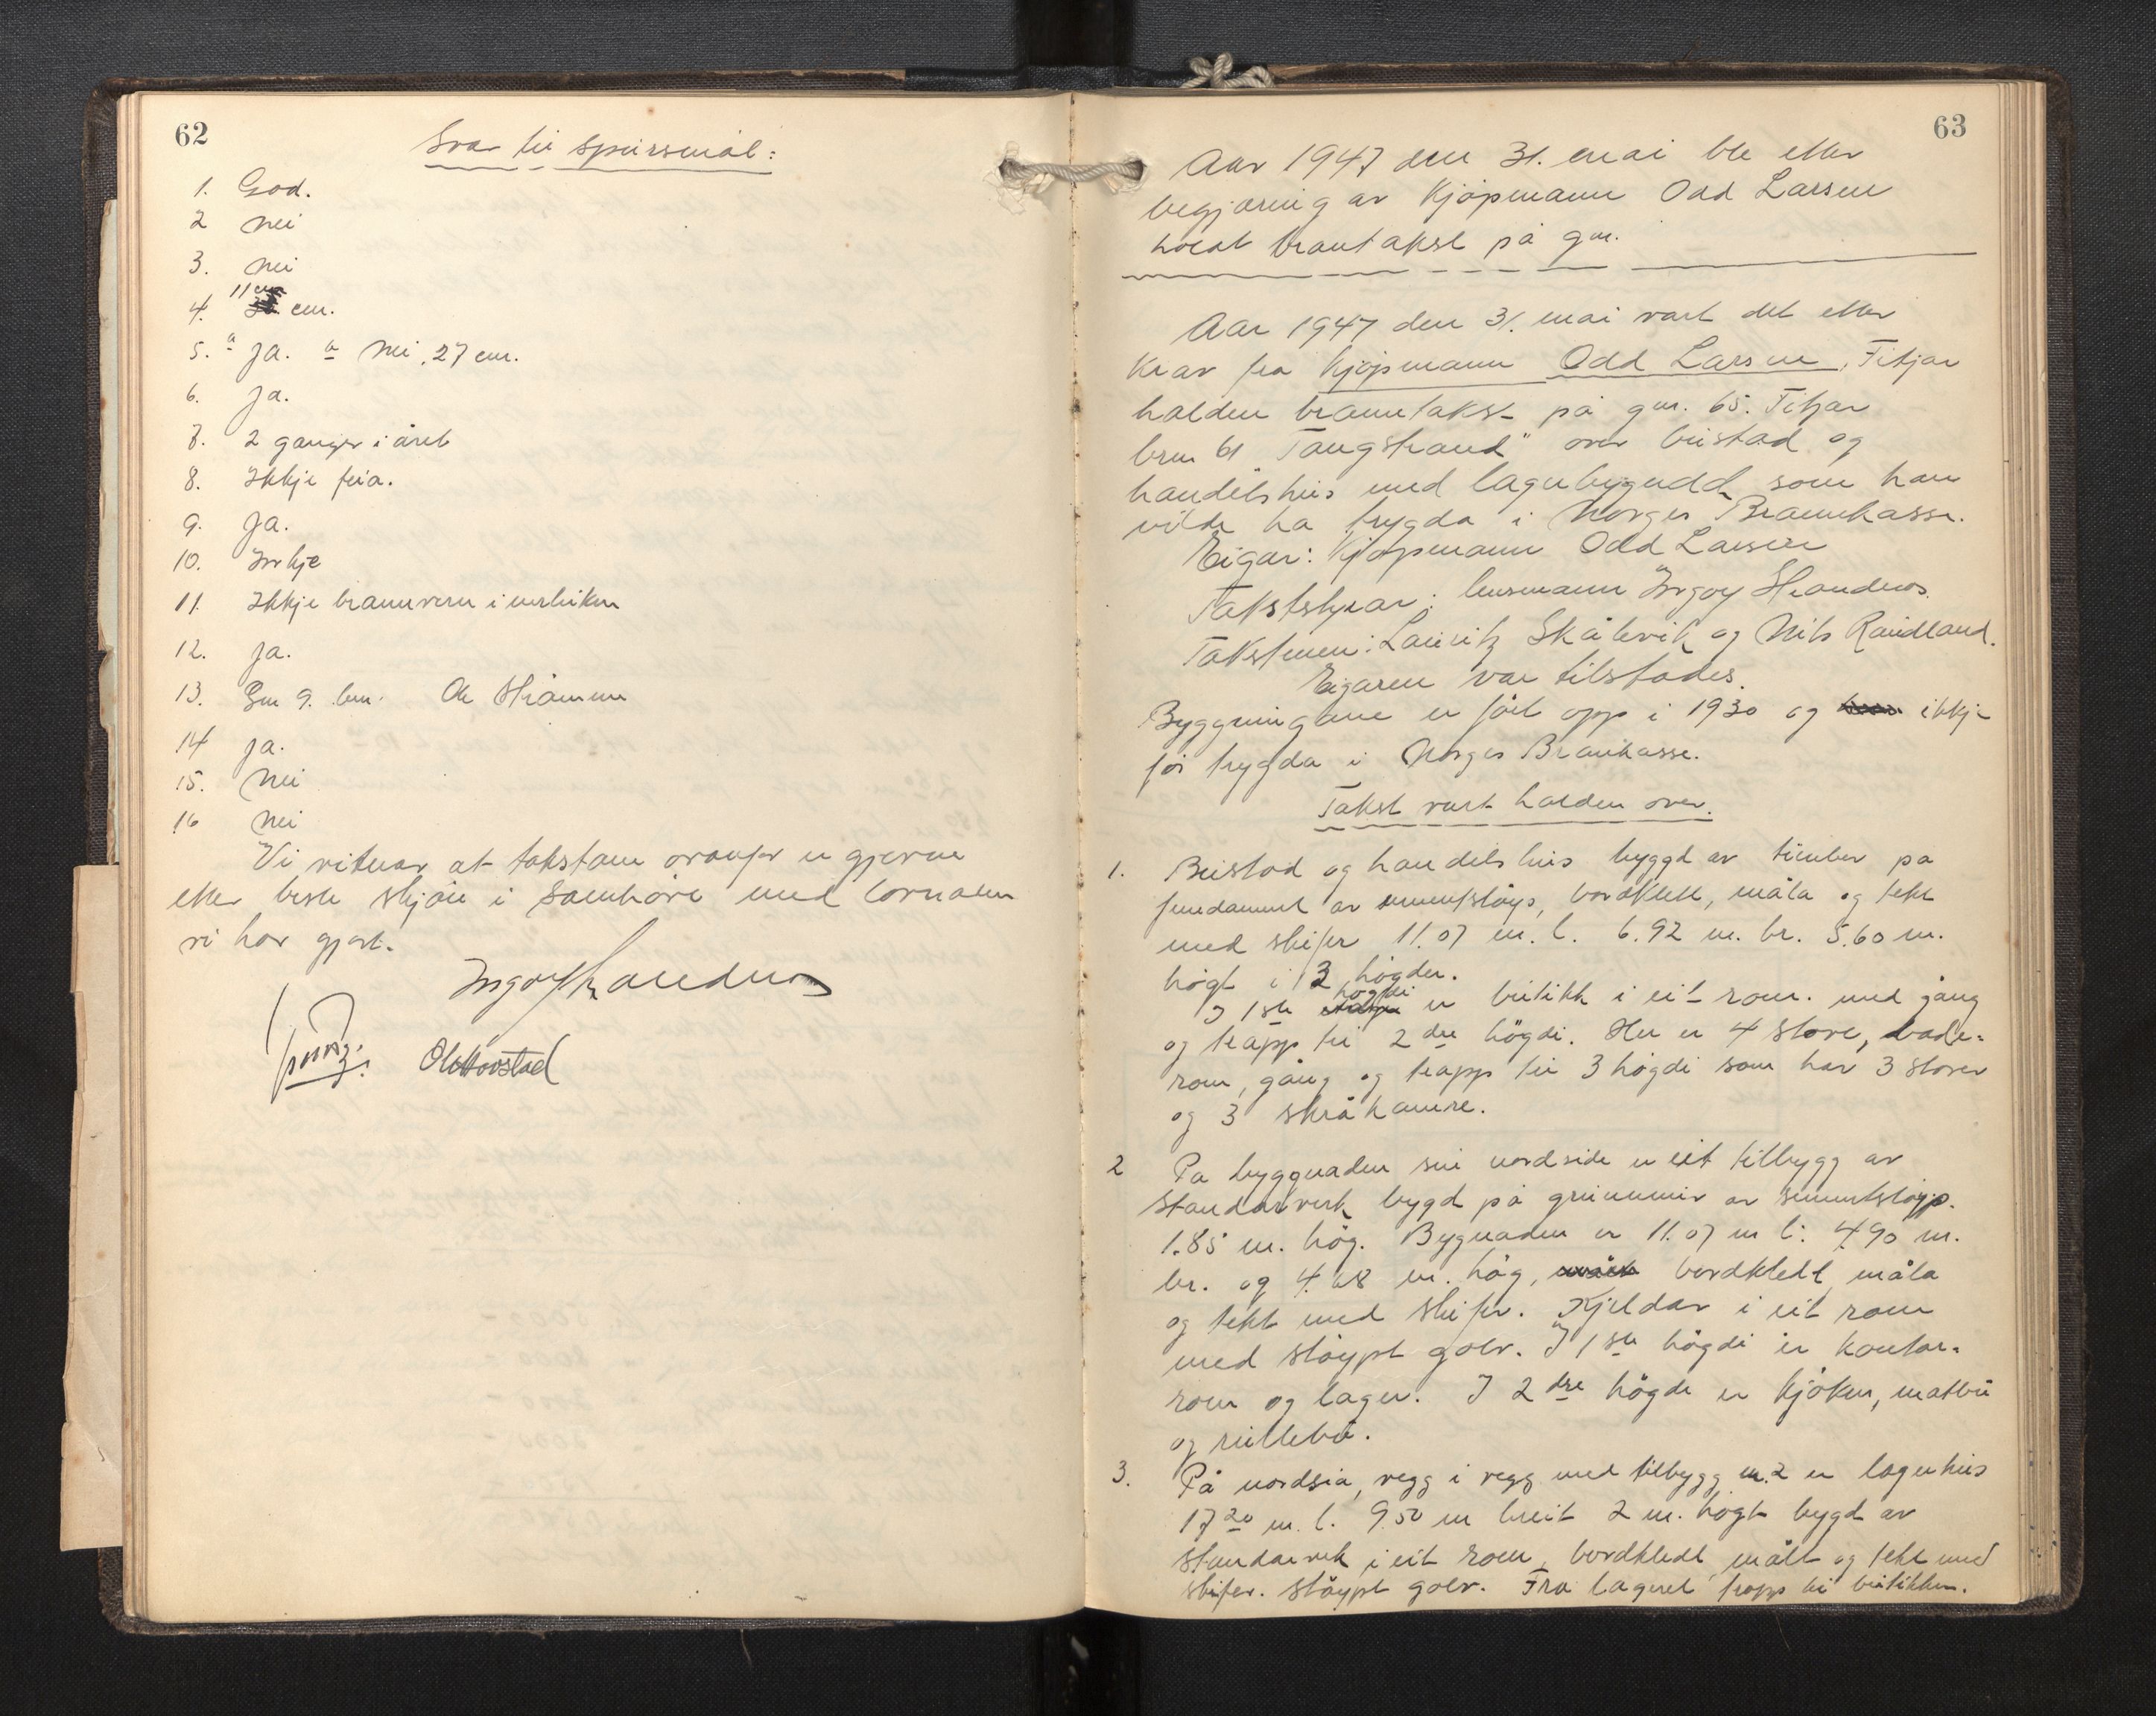 62
Svar til spursmål:
1. God.
2 Nei
3. Nei
4. 11 cm cm.
5. a Ja. Nei, 27 cm.
6. Ja.
7. 2 ganger i året
8. Ikkje feia.
9. Ja.
10. Innkje
11. Ikkje brannvern i verkiken
12. Ja.
13. Gnr 9. bnr. Ole Strømmen
14 Ja.
15. Nei
16 Nei
Vi vitnar at takstane ovanfor er gjevne
etter beste skjøn i samhøve med lovnaden
vi har gjort.
Ingolf Strandenes
Ole Hovstad
63
Aar 1947 den 31. mai ble etter
begjæring av Kjøpmann Odd Larsen
holdt brantakst på gnr.
Aar 1947 den 31. mai vart det etter
krav fra kjøpmann Odd Larsen, Fitjar
halden branntakst på gnr. 65. Fitjar
bnr 61 Tangstrand" over bustad og
handelshus med lagerbygnad som han
vilde ha trygda i Norges Brannkasse.
Eigar: Kjøpmann Odd Larsen
Takststyrar: lensmann Ingolf Strandenes.
Takstmenn: Lauritz Skålevik og Nils Raudland.
Eigaren var tilstades.
Byggningane er ført opp i 1930 og ikkje
før trygda i Norges Brankasse.
Takst vart halden over.
1. Bustad og handelshus byggd av timber på
fundament av sementstøyp, bordkledt, måla og tekt
med skifer 11.07 m. l. 6.92 m. br. 5.60 m.
högt i 3 högder.
I 1ste högdi er butikk i eit rom. med gang
og trapp til 2dre högdi. Her er 4 stover, bade-
rom, gång og trapp til 3 högdi som har 3 stover
og 3 skråkamre.
2 På byggnaden sin nordside er eit tilbygg av
standarverk bygd på grunnmur av sementstøyp.
1.85 m. høg. Bygnaden er 11.07 m l. 4.90 m.
br. og 4.68 m. høg, bordkledt måla
og tekt med skifer. Kjeldar i eit rom
med støypt golv. I 1ste högdi er kontor-
rom og lager. I 2dre högde er kjøken, matbu
og rullebu.
3. På nordsia, vegg i vegg med tilbygg nr. 2 er lagerhus
17 20 m. l. 9.50 m breit 2 m. högt bygd av
standarverk i eit rom, bordkledt målt og tekt med
skifer. støypt golv. Fra lageret trapp til butikken.